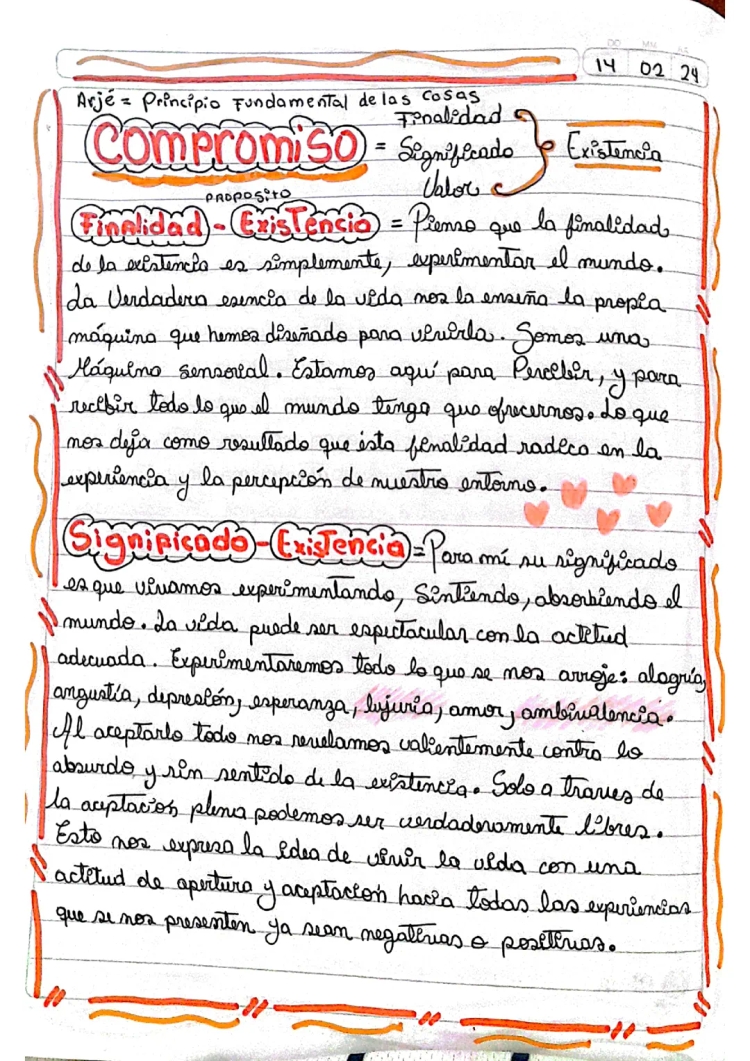 DD MM AA
14 02 24
Arjé = Principio Fundamental de las cosas
Compromiso = Finalidad Significado Valor } Existencia
PROPOSITO
Finalidad - Existencia = Pienso que la finalidad
de la existencia es simplemente, experimentar el mundo.
La Verdadera esencia de la vida nos la enseña la propia
máquina que hemos diseñado para vivirla. Somos una
Máquina sensorial. Estamos aquí para Percibir, y para
recibir todo lo que el mundo tenga que ofrecernos. Lo que
nos deja como resultado que ésta finalidad radica en la
experiencia y la percepción de nuestro entorno.
Significado - Existencia = Para mí su significado
es que vivamos experimentando, Sintiendo, absorbiendo el
mundo. La vida puede ser espectacular con la actitud
adecuada. Experimentaremos todo lo que se nos arroje: alegría,
angustia, depresión, esperanza, lujuria, amor, ambivalencia.
Al aceptarlo todo nos revelamos valientemente contra lo
absurdo y sin sentido de la existencia. Solo a traves de
la aceptación plena podemos ser verdaderamente libres.
Esto nos expresa la idea de vivir la vida con una
actitud de apertura y aceptación hacia todas las experiencias
que se nos presenten ya sean negativas o positivas.